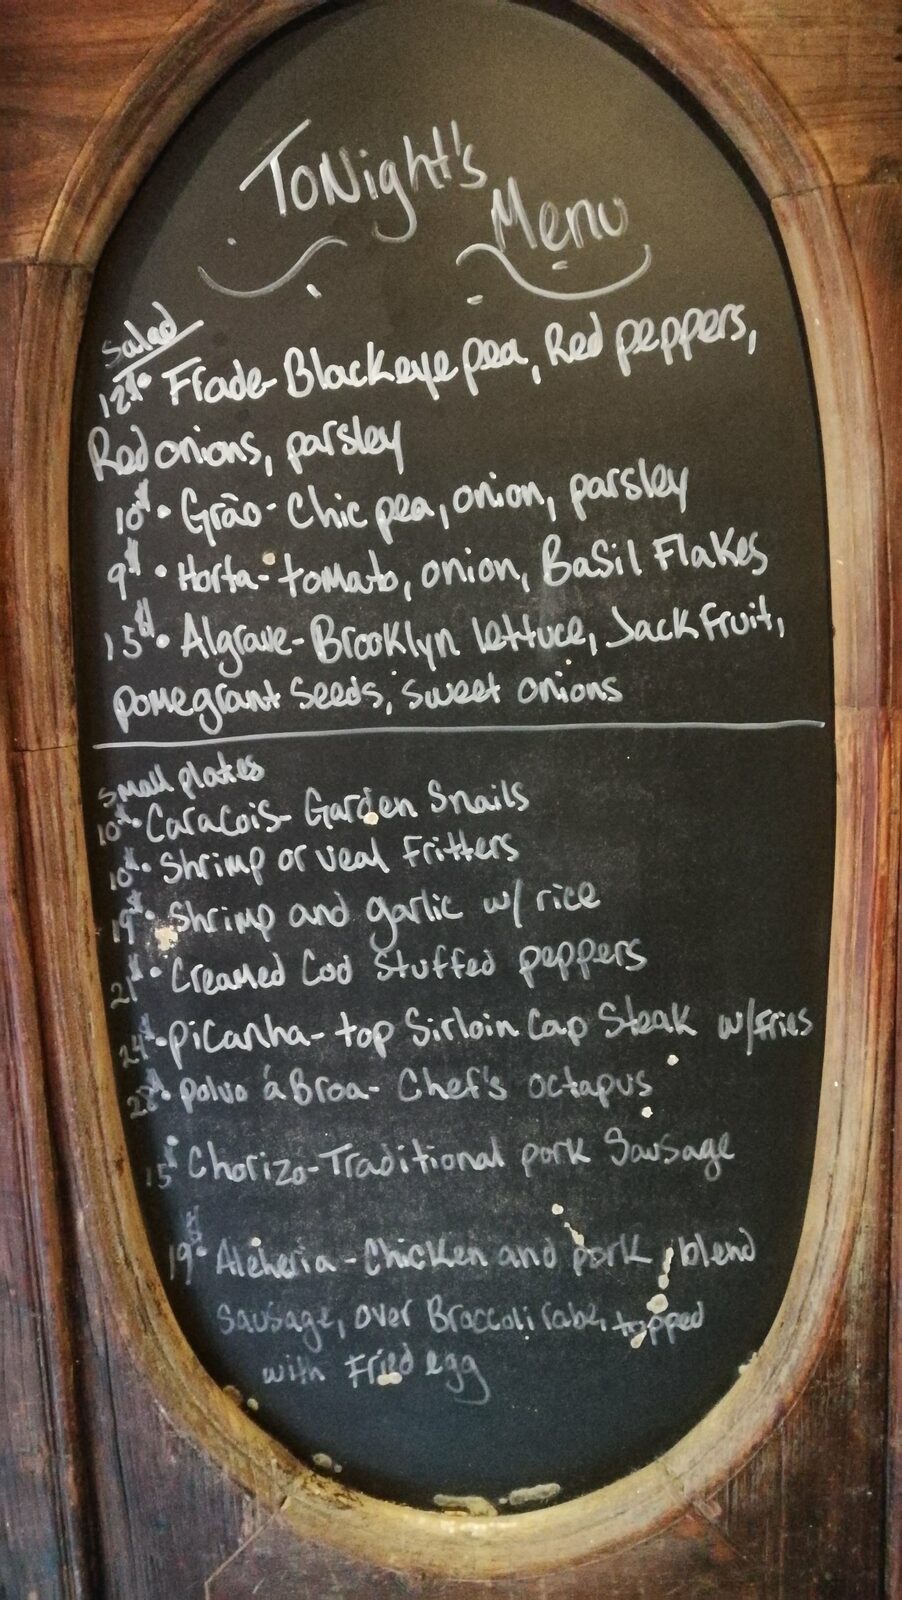 ToNight's
Menu
Salad
12$• Frade- Blackeye pea, Red peppers,
Red onions, parsley
10$• Grão- Chic pea, onion, parsley
9$• Horta- tomato, onion, Basil Flakes
15$• Algrave- Brooklyn lettuce, Jack Fruit,
pomegrant seeds, sweet onions
Small plates
10$• Caracois- Garden Snails
10$• Shrimp or veal Fritters
19$• Shrimp and garlic w/ rice
21$• Creamed Cod Stuffed peppers
24$• Picanha- top Sirloin Cap Steak w/Fries
28$• polvo á Broa- Chef's octopus
15$ Chorizo- Traditional pork Sausage
19$• Aleheria- Chicken and pork, blend
sausage, over Broccoli rabe, topped
with Fried egg